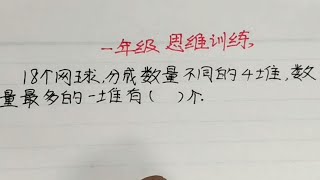 一年级 思维训练
18个网球,分成数量不同的4堆,数
量最多的一堆有( )个.